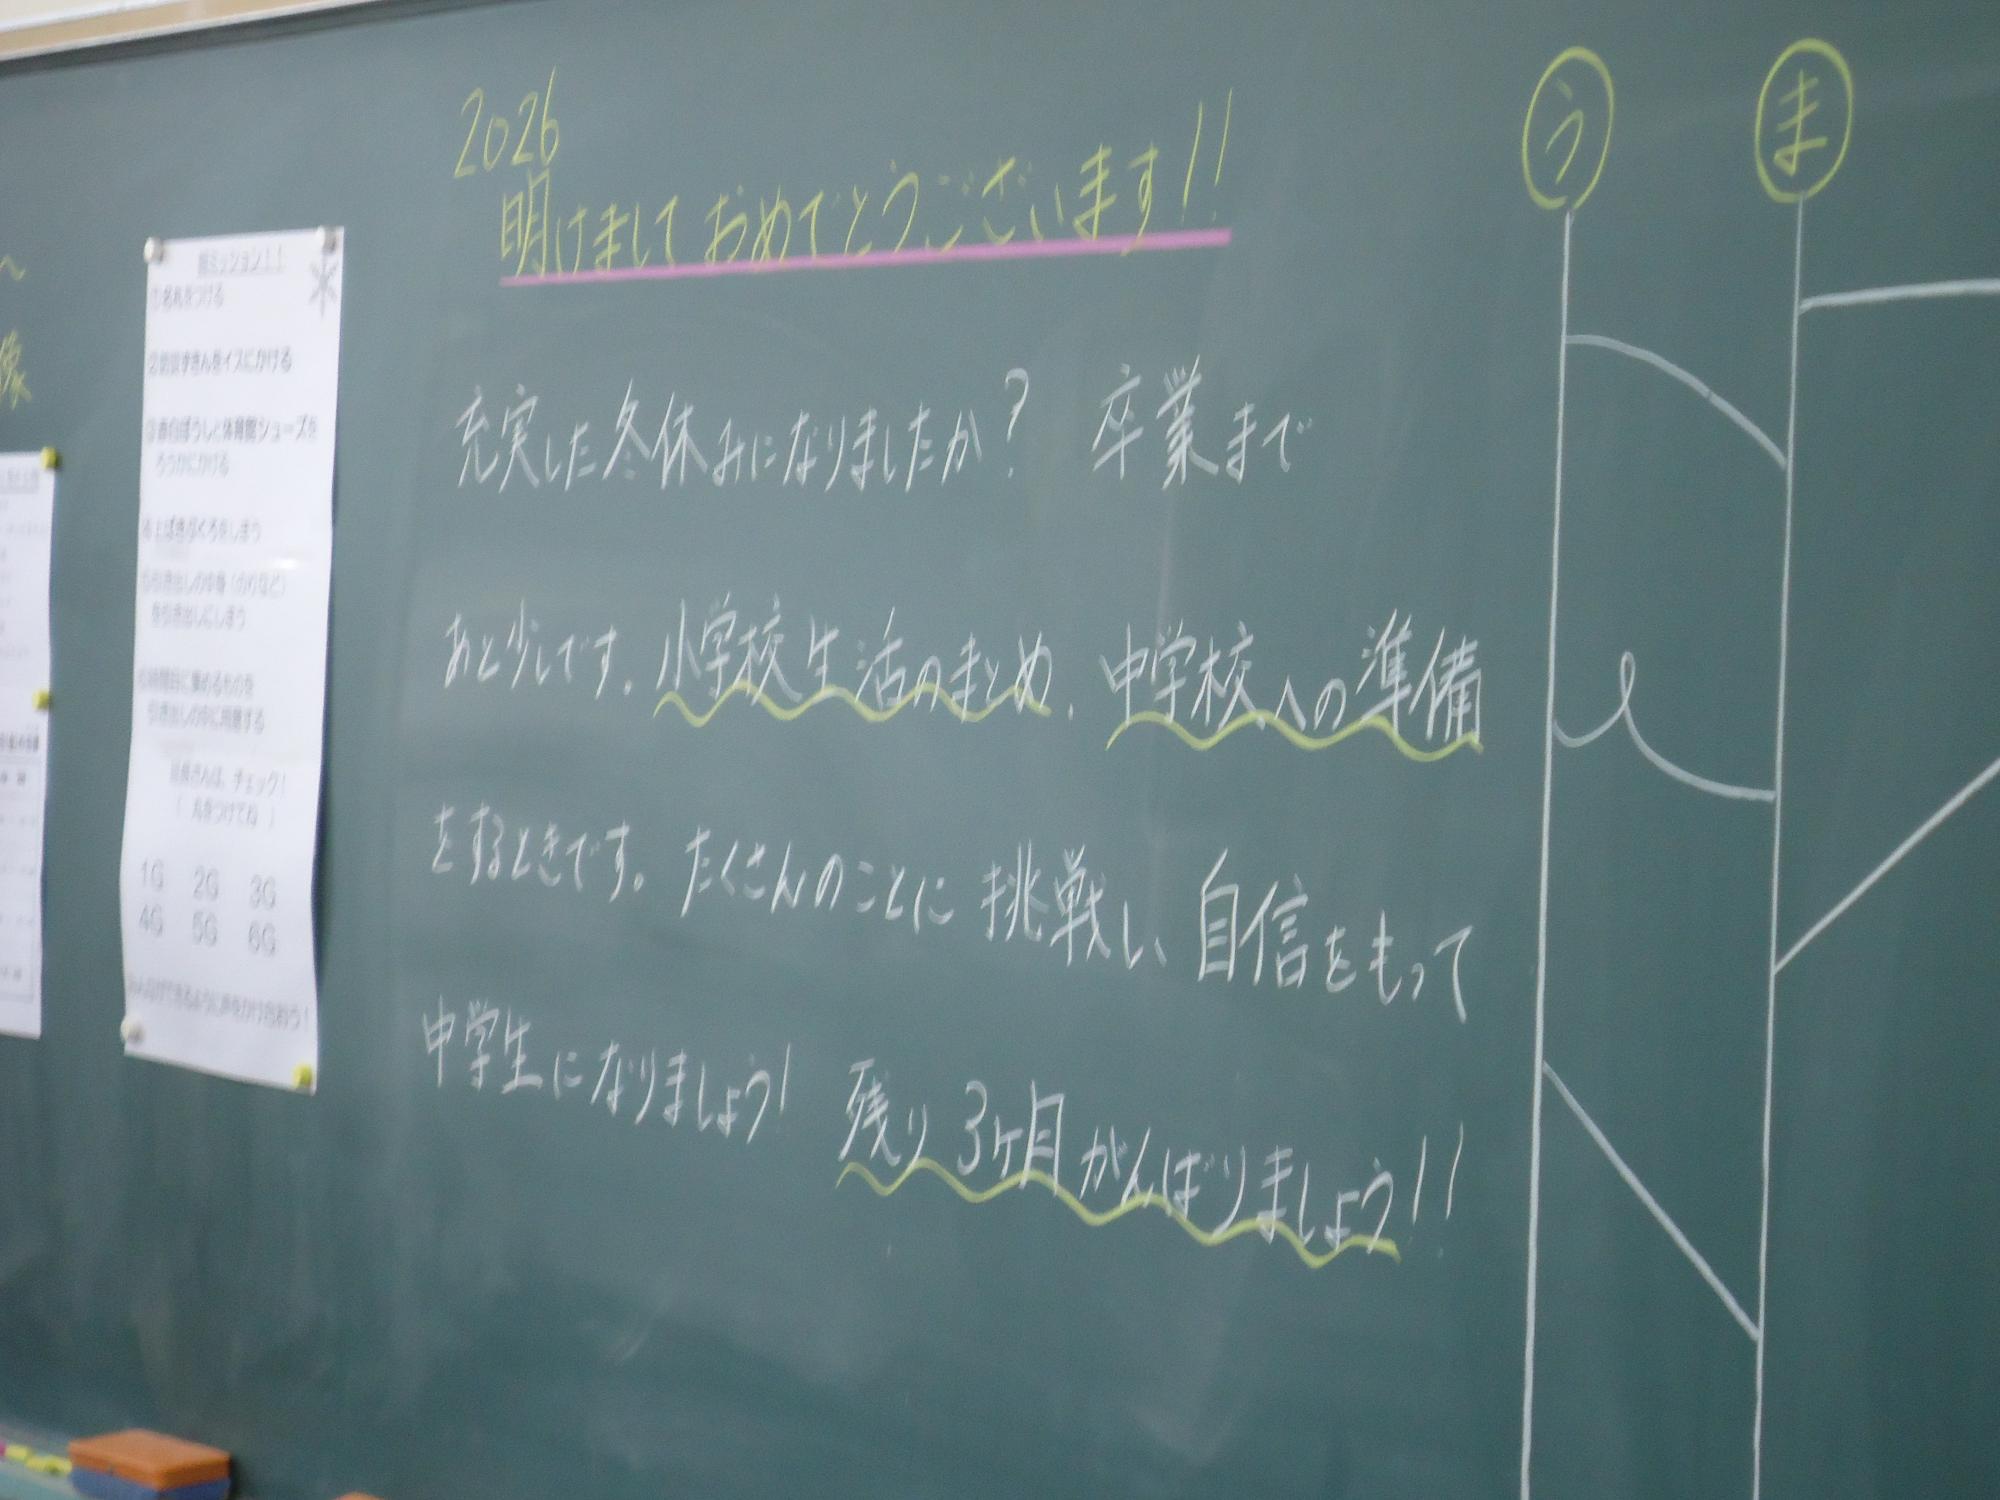 2026
明けましておめでとうございます!!
充実した冬休みになりましたか? 卒業まで
あと少しです。小学校生活のまとめ、中学校への準備
をするときです。たくさんのことに挑戦し、自信をもって
中学生になりましょう! 残り3ヶ月がんばりましょう!!
う
ま
朝ミッション!!
①名札をつける
②防災ずきんをイスにかける
③赤白ぼうしと体育館シューズを
ろうかにかける
④上ばきぶくろをしまう
⑤引き出しの中身(のりなど)
を引き出しにしまう
集めるものを
引き出しの中に用意する
班長さんは、チェック!
(丸をつけてね)
1G 2G 3G
4G 5G 6G
みんなができるように声をかけ合おう!
へ
像